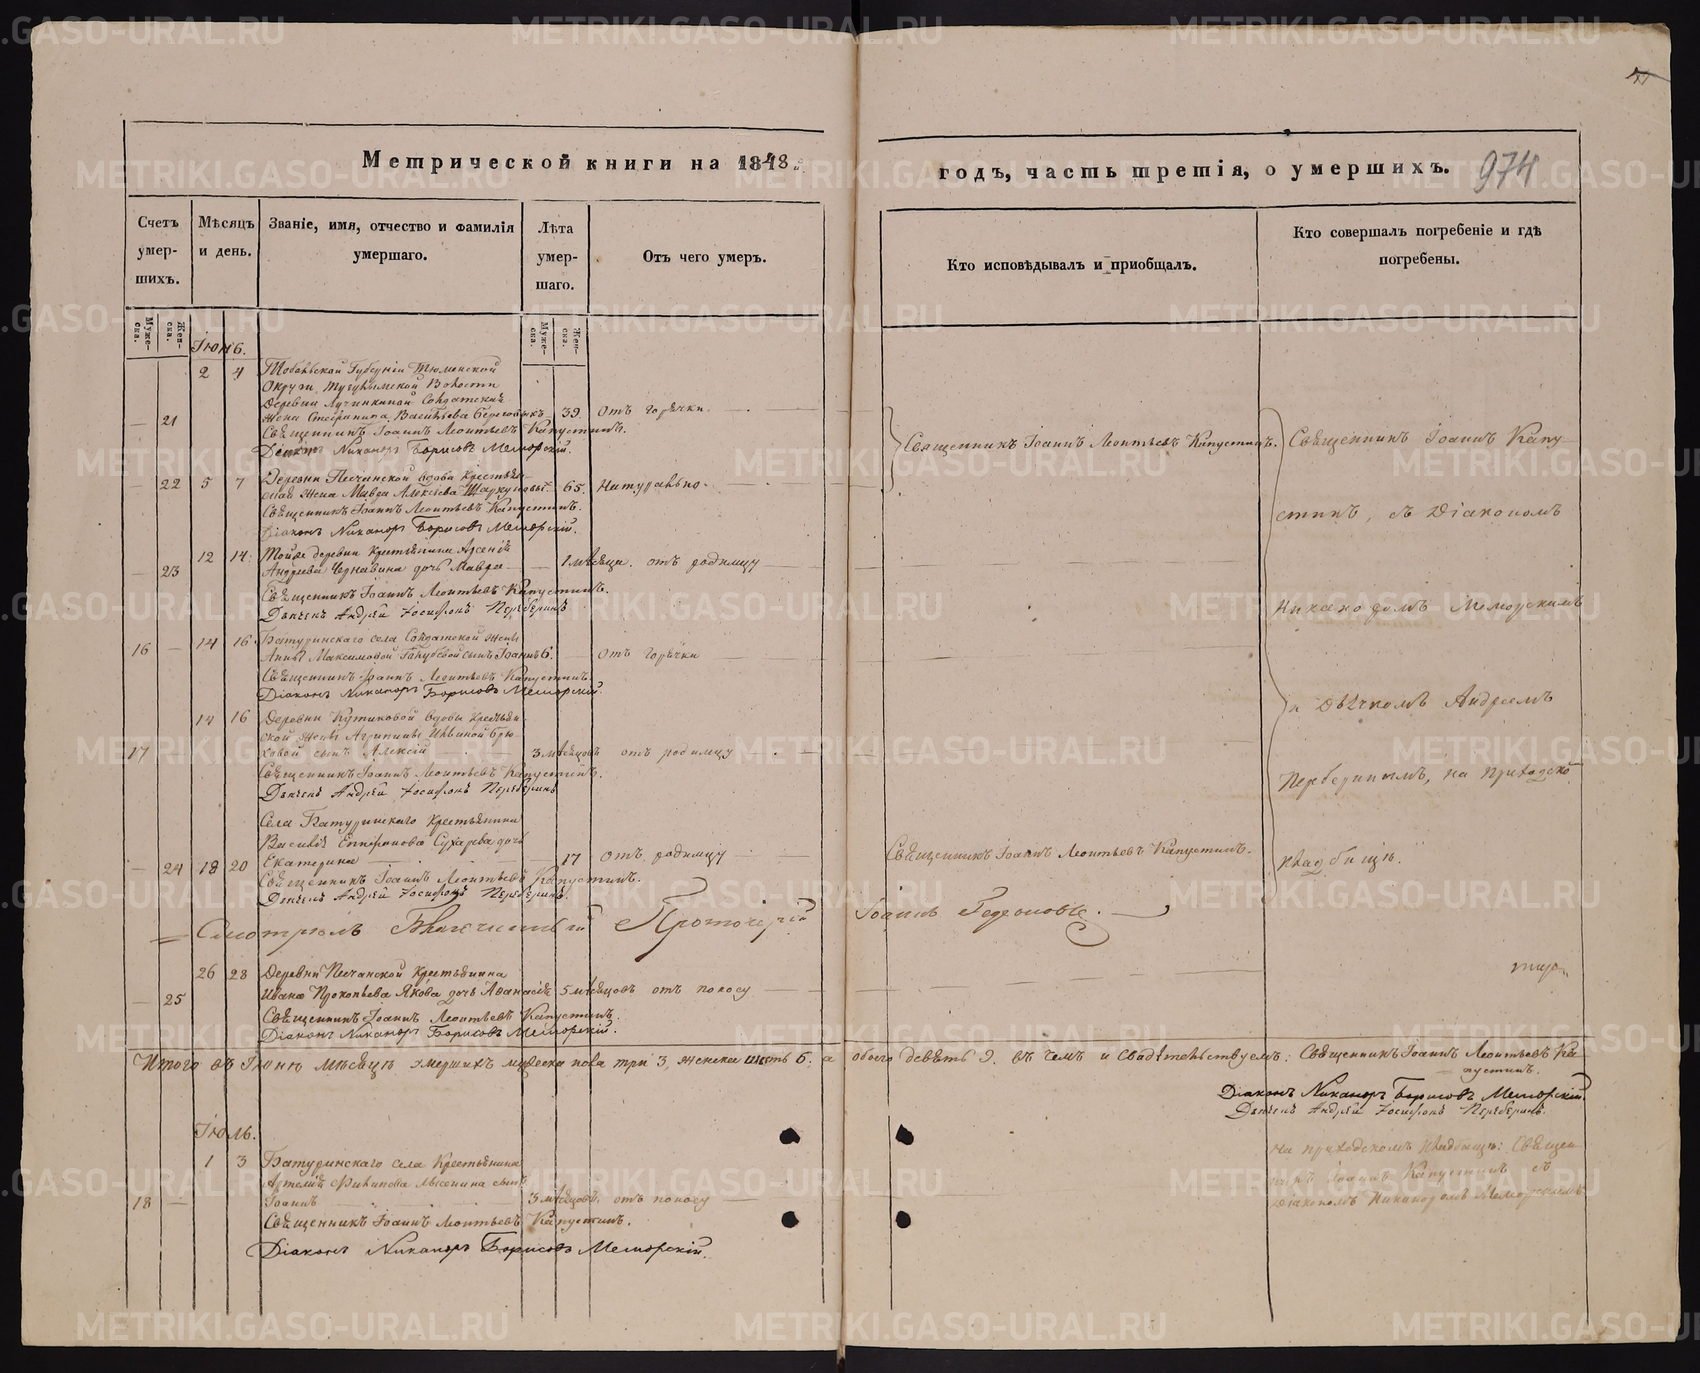 Метрической книги на 1848.
годъ, часть третія, о умершихъ. 974
Счетъ умер-шихъ.
Мѣсяцъ и день.
Званіе, имя, отчество и фамилія умершаго.
Лѣта умер-шаго.
Отъ чего умеръ.
Кто исповѣдывалъ и приобщалъ.
Кто совершалъ погребеніе и гдѣ погребены.
Муже-ска. Жен-ска.
Муже-ска. Жен-ска.
Іюнь.
2 4 Тобольской Губерніи Тюменской
Округи, Тугулымской Волости
Деревни Солдатская
21 жена Васильева 39. отъ горячки.
Священникъ Іоаннъ Леонтьевъ Капустинъ.
Діаконъ Никаноръ Борисовъ Меморскій.
Священникъ Іоаннъ Леонтьевъ Капустинъ.
Священникъ Іоаннъ Капу-
22 5 7 Деревни Песчанской вдова Крестьян-
ская жена Мавра Алексѣева 65. Натурально.
Священникъ Іоаннъ Леонтьевъ Капустинъ.
Діаконъ Никаноръ Борисовъ Меморскій.
стинъ, съ Діакономъ
12 14 Тойже деревни крестьянина Арсенія
23 Андреева Чернавина дочь Мавра 1 мѣсяца. отъ родимцу
Священникъ Іоаннъ Леонтьевъ Капустинъ.
Дьячекъ Андрей Іосифовъ Переберинъ
Никаноромъ Меморскимъ
14 16 Батуринскаго села Солдатской жены
16 Анны Максимовой Голубевой сынъ Іоаннъ 6. отъ горячки
Священникъ Іоаннъ Леонтьевъ Капустинъ.
Діаконъ Никаноръ Борисовъ Меморскій.
и Дьячкомъ Андреемъ
14 16 Деревни Кутиковой вдовы крестьян-
ской жены Агрипины Ильиной Брю-
17 ховой сынъ Алексій 3 мѣсяцовъ отъ родимцу
Священникъ Іоаннъ Леонтьевъ Капустинъ.
Дьячекъ Андрей Іосифовъ Переберинъ
Переберинымъ, на приходско
Села Батуринскаго крестьянина
Василія Епифанова Сухарева дочь
24 18 20 Екатерина 17 отъ родимцу
Священникъ Іоаннъ Леонтьевъ Капустинъ.
Дьячекъ Андрей Іосифовъ Переберинъ.
Священникъ Іоаннъ Леонтьевъ Капустинъ.
кладбищѣ.
Смотрѣлъ Благочинный Протоіерей Іоаннъ Гедеоновъ.
26 28 Деревни Песчанской Крестьянина
25 Ивана Прокопьева Якова дочь Афанасія 5 мѣсяцовъ отъ поносу
Священникъ Іоаннъ Леонтьевъ Капустинъ.
Діаконъ Никаноръ Борисовъ Меморскій.
Итого въ Іюнѣ мѣсяцѣ умершихъ мужеска пола три 3, женска шесть 6; а обоего девять 9. въ чемъ и свидѣтельствуемъ: Священникъ Іоаннъ Леонтьевъ Ка-
пустинъ.
Діаконъ Никаноръ Борисовъ Меморскій.
Дьячекъ Андрей Іосифовъ Переберинъ.
Іюль.
1 3 Батуринскаго села Крестьянина
Филипова сынъ
18 Іоаннъ 3 мѣсяцовъ. отъ поносу
Священникъ Іоаннъ Леонтьевъ Капустинъ.
Діаконъ Никаноръ Борисовъ Меморскій.
на приходскомъ кладбищѣ: Священ-
никъ Іоаннъ Капустинъ съ
діакономъ Никаноромъ Меморскимъ
METRIKI.GASO-URAL.RU